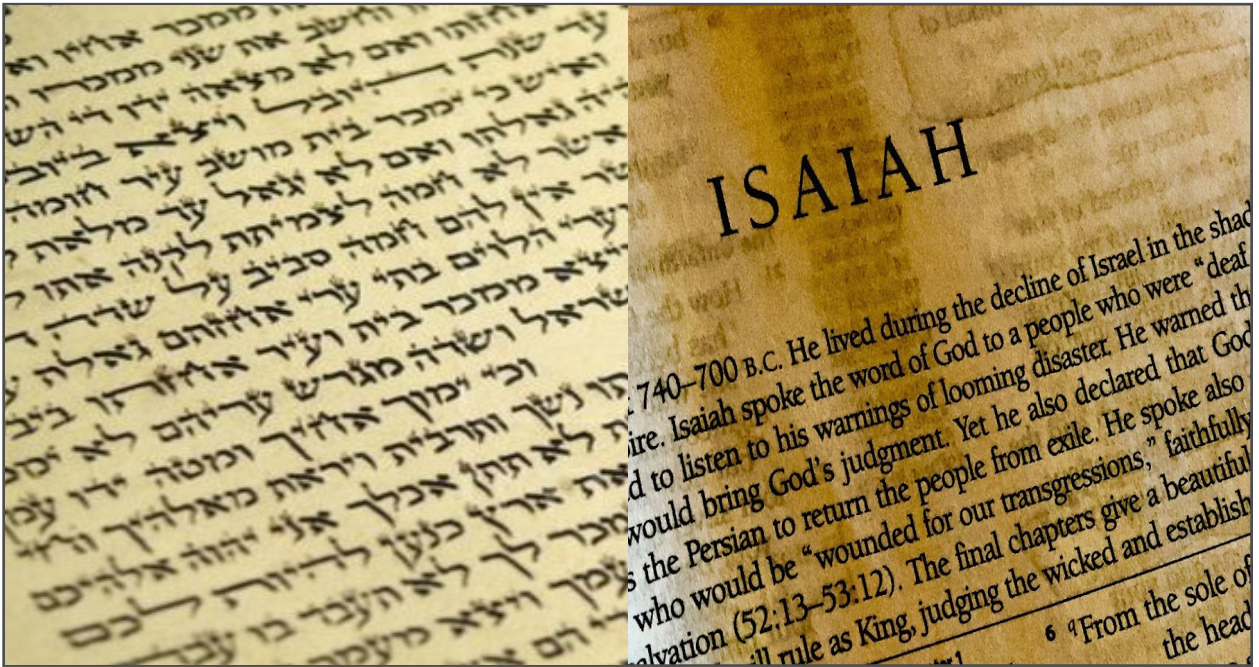 ממכר אחיו
וחשב את שני ממכרו
ואם לא מצאה ידו די
עד שנת היובל ויצא
ואיש כי ימכר בית מושב עיר חומה
גאלתו ואם לא יגאל עד מלאת
אשר לא חמה לצמיתת לקנה אתו
אין להם חמה סביב על שדה
ערי הלוים בתי ערי אחזתם גאלה
ויצא ממכר בית ועיר אחזתו
ושדה מגרש עריהם לא
וכי ימוך אחיך ומטה ידו
נשך ותרבית ויראת מאלהיך
לא תתן אכלך אני יהוה אלהיכם
את ארץ כנען להיות לכם
לך לא תעבד בו
ויצא מעמך
ISAIAH
740–700 B.C. He lived during the decline of Israel in the shad
ire. Isaiah spoke the word of God to a people who were “deaf
d to listen to his warnings of looming disaster. He warned th
would bring God’s judgment. Yet he also declared that God
s the Persian to return the people from exile. He spoke also
who would be “wounded for our transgressions,” faithfully
alvation (52:13–53:12). The final chapters give a beautiful
ill rule as King, judging the wicked and establish
6 q From the sole of
the head